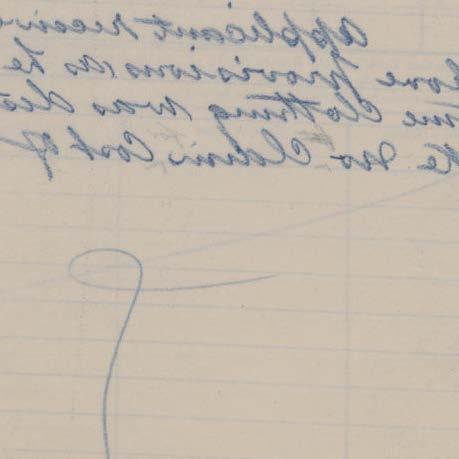 Applicant receive
ove provisions as
me Clothing was des
no Claim Cost of